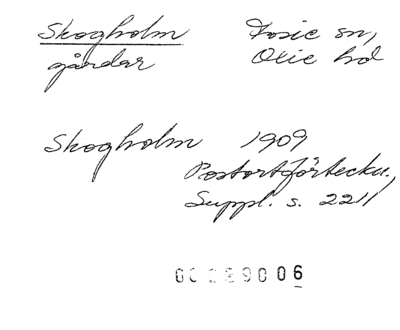 Skogholm
gårdar
Fosie sn,
Oxie hd
Skogholm 1909
Postortförteckn.,
Suppl. s. 2211